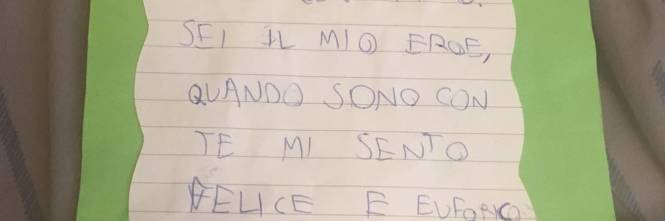 SEI IL MIO EROE,
QUANDO SONO CON
TE MI SENTO
FELICE E EUFORICO